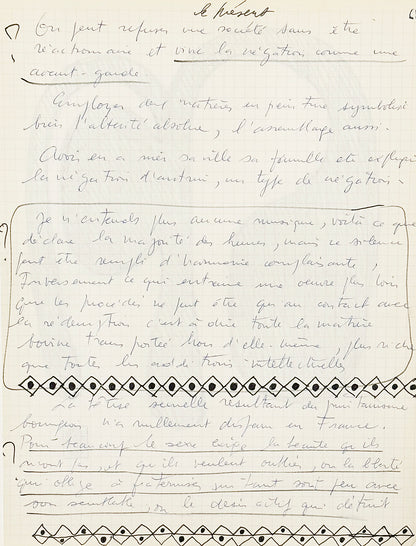 le présent
On peut refuser une société sans être
réactionnaire et vivre la négation comme une
avant-garde.
Employer des matières en peinture symbolise
bien l'altérité absolue, l'assemblage aussi.
Avoir en a mis sa ville sa famille etc explique
la négation d'autrui, un type de négation.
Je n'entends plus aucune musique, voilà ce que
déclare la majorité des heures, mais ce silence
peut être rempli d'harmonie complaisante,
Inversement ce qui entraine une oeuvre plus loin
que les procédés ne peut être qu'au contact avec
la rédemption c'est à dire toute la matière
bovine transportée hors d'elle-même, plus riche
que toutes les additions intellectuelles
La bêtise sexuelle résultant du puritanisme
bourgeois n'a nullement disparu en France.
Pour beaucoup le sexe exige la beauté qu'ils
n'ont pas et qu'ils veulent oublier, ou la liberté
qui oblige à fraterniser un tant soit peu avec
son semblable, ou le désir actif qui détruit